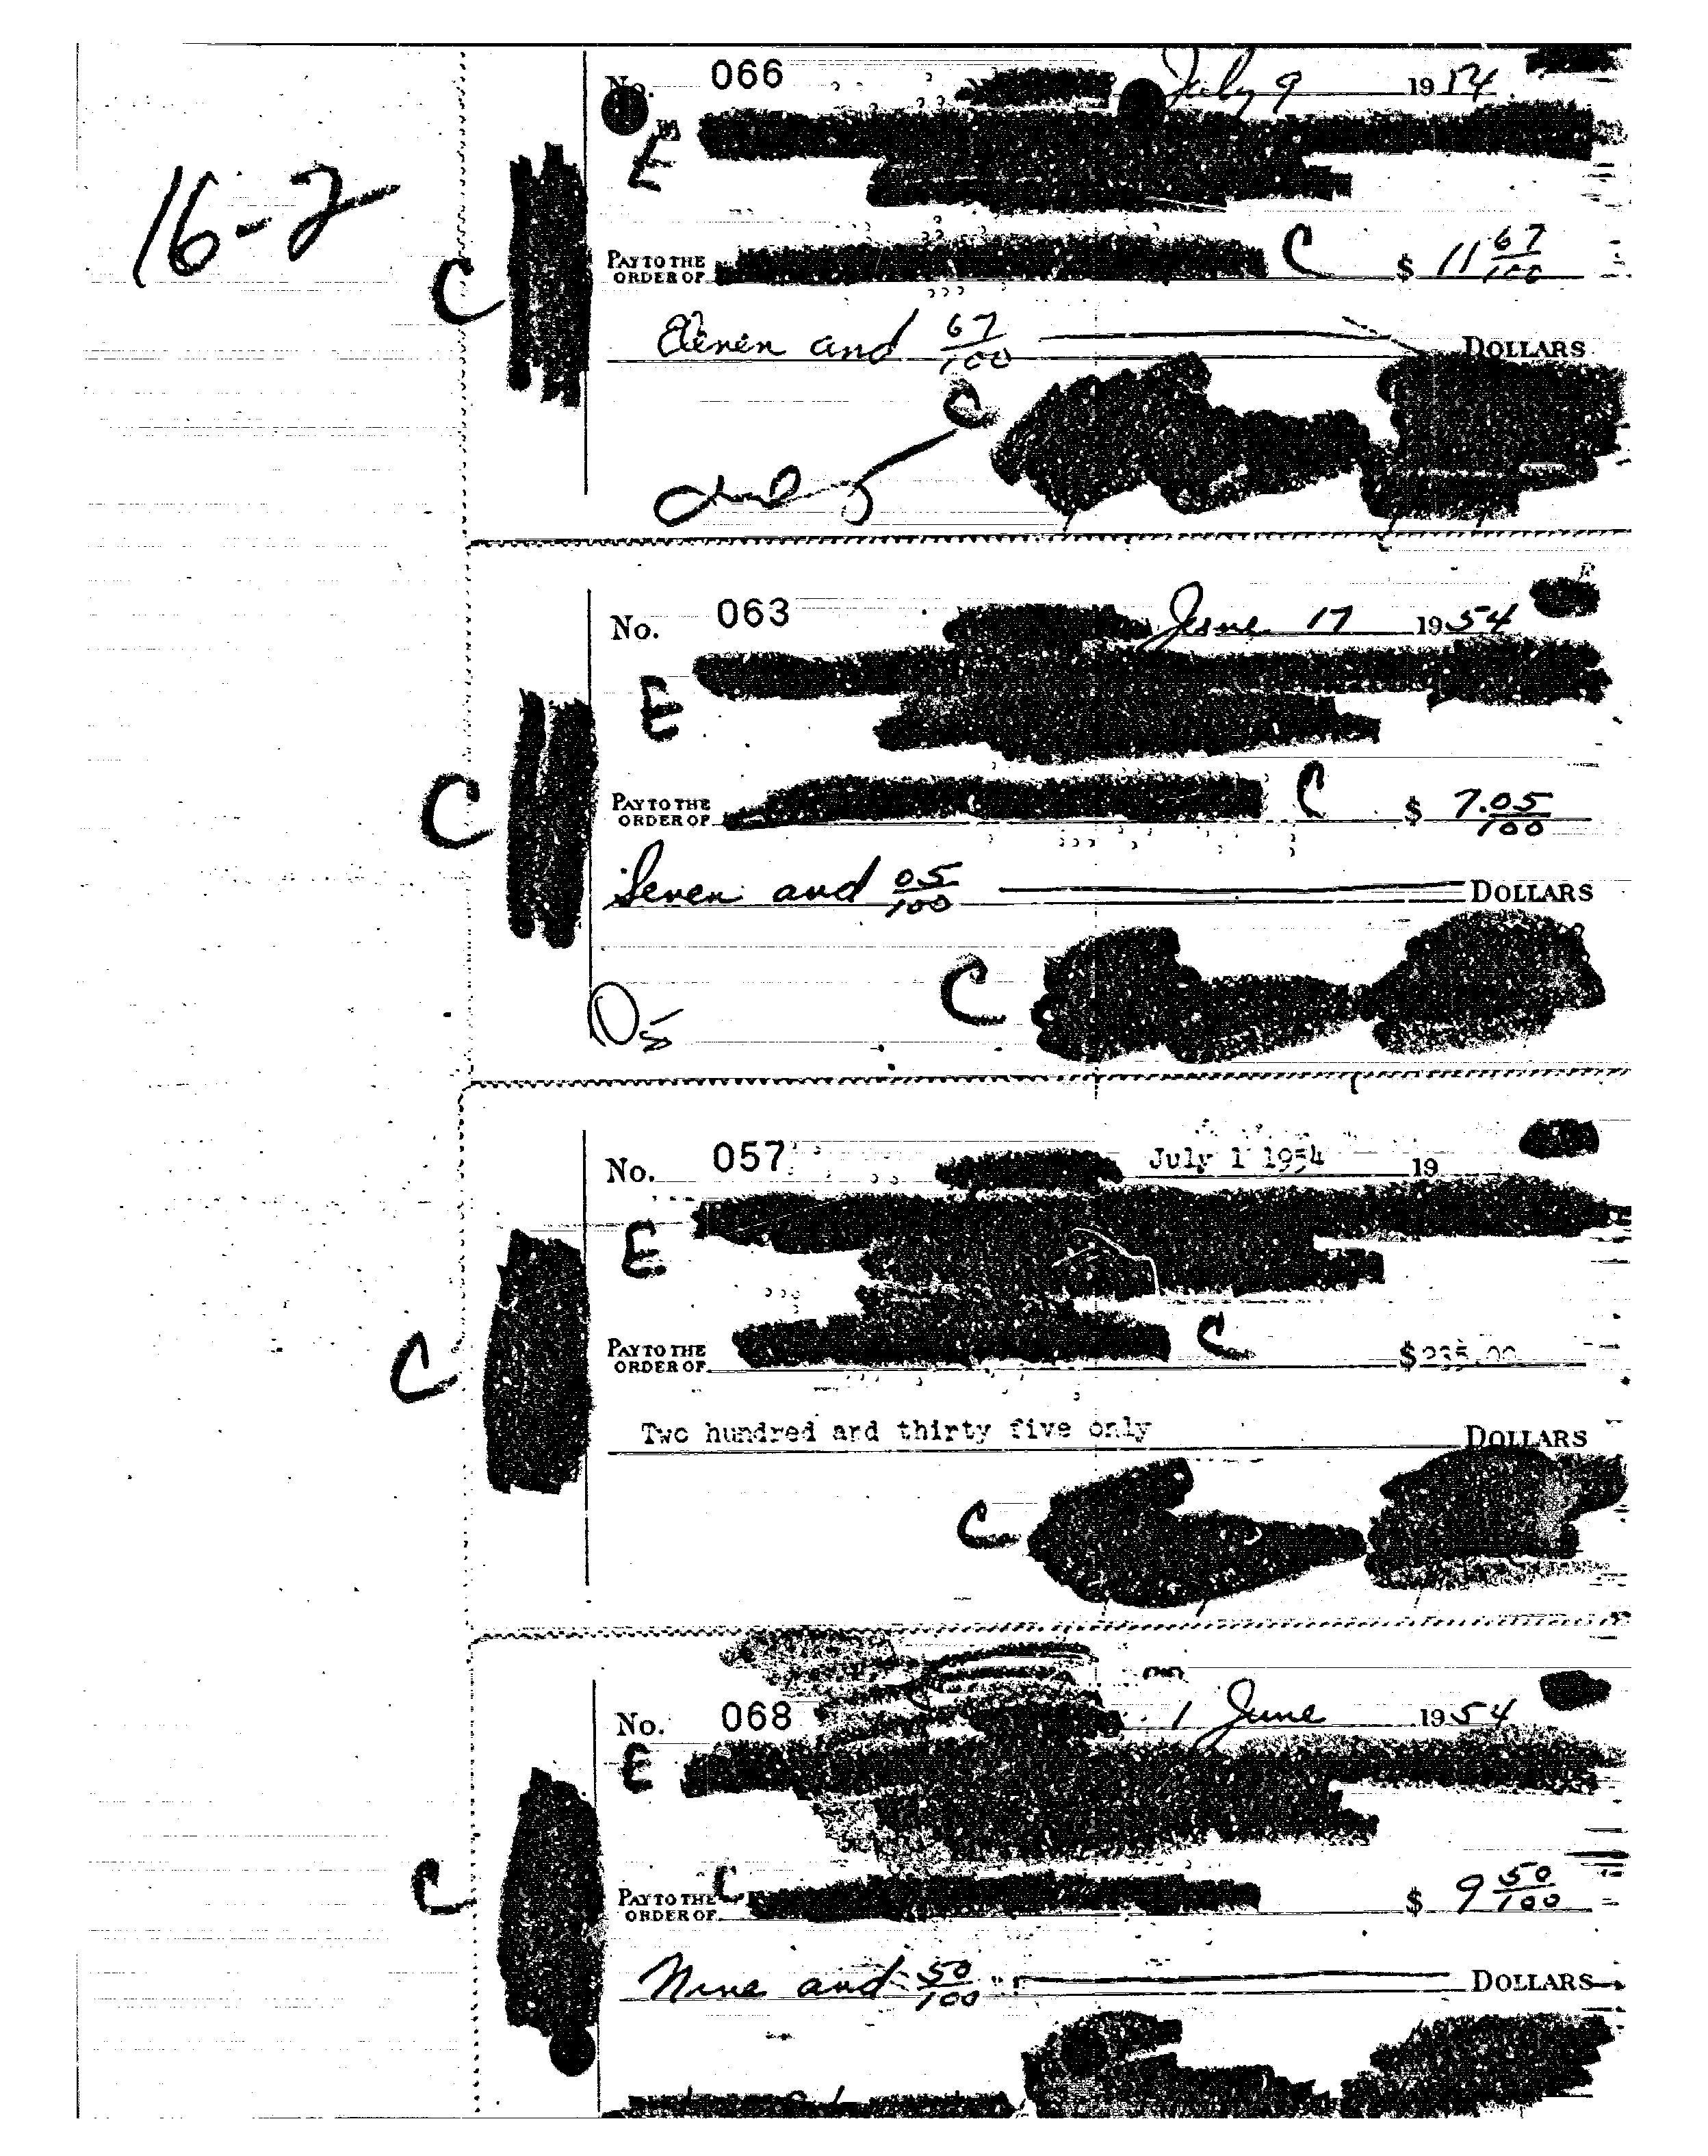 16-2
No. 066 July 9 1954
E
C
PAY TO THE
ORDER OF C $ 11 67/100
Eleven and 67/100 DOLLARS
C
No. 063 June 17 1954
E
C
PAY TO THE
ORDER OF C $ 7.05/100
Seven and 05/100 DOLLARS
C
No. 057 July 1 1954 19
E.
C
PAY TO THE
ORDER OF C $235.00
Two hundred and thirty five only DOLLARS
C
No. 068 1 June 1954
E
C
PAY TO THE
ORDER OF C $ 9 50/100
Nine and 50/100 DOLLARS